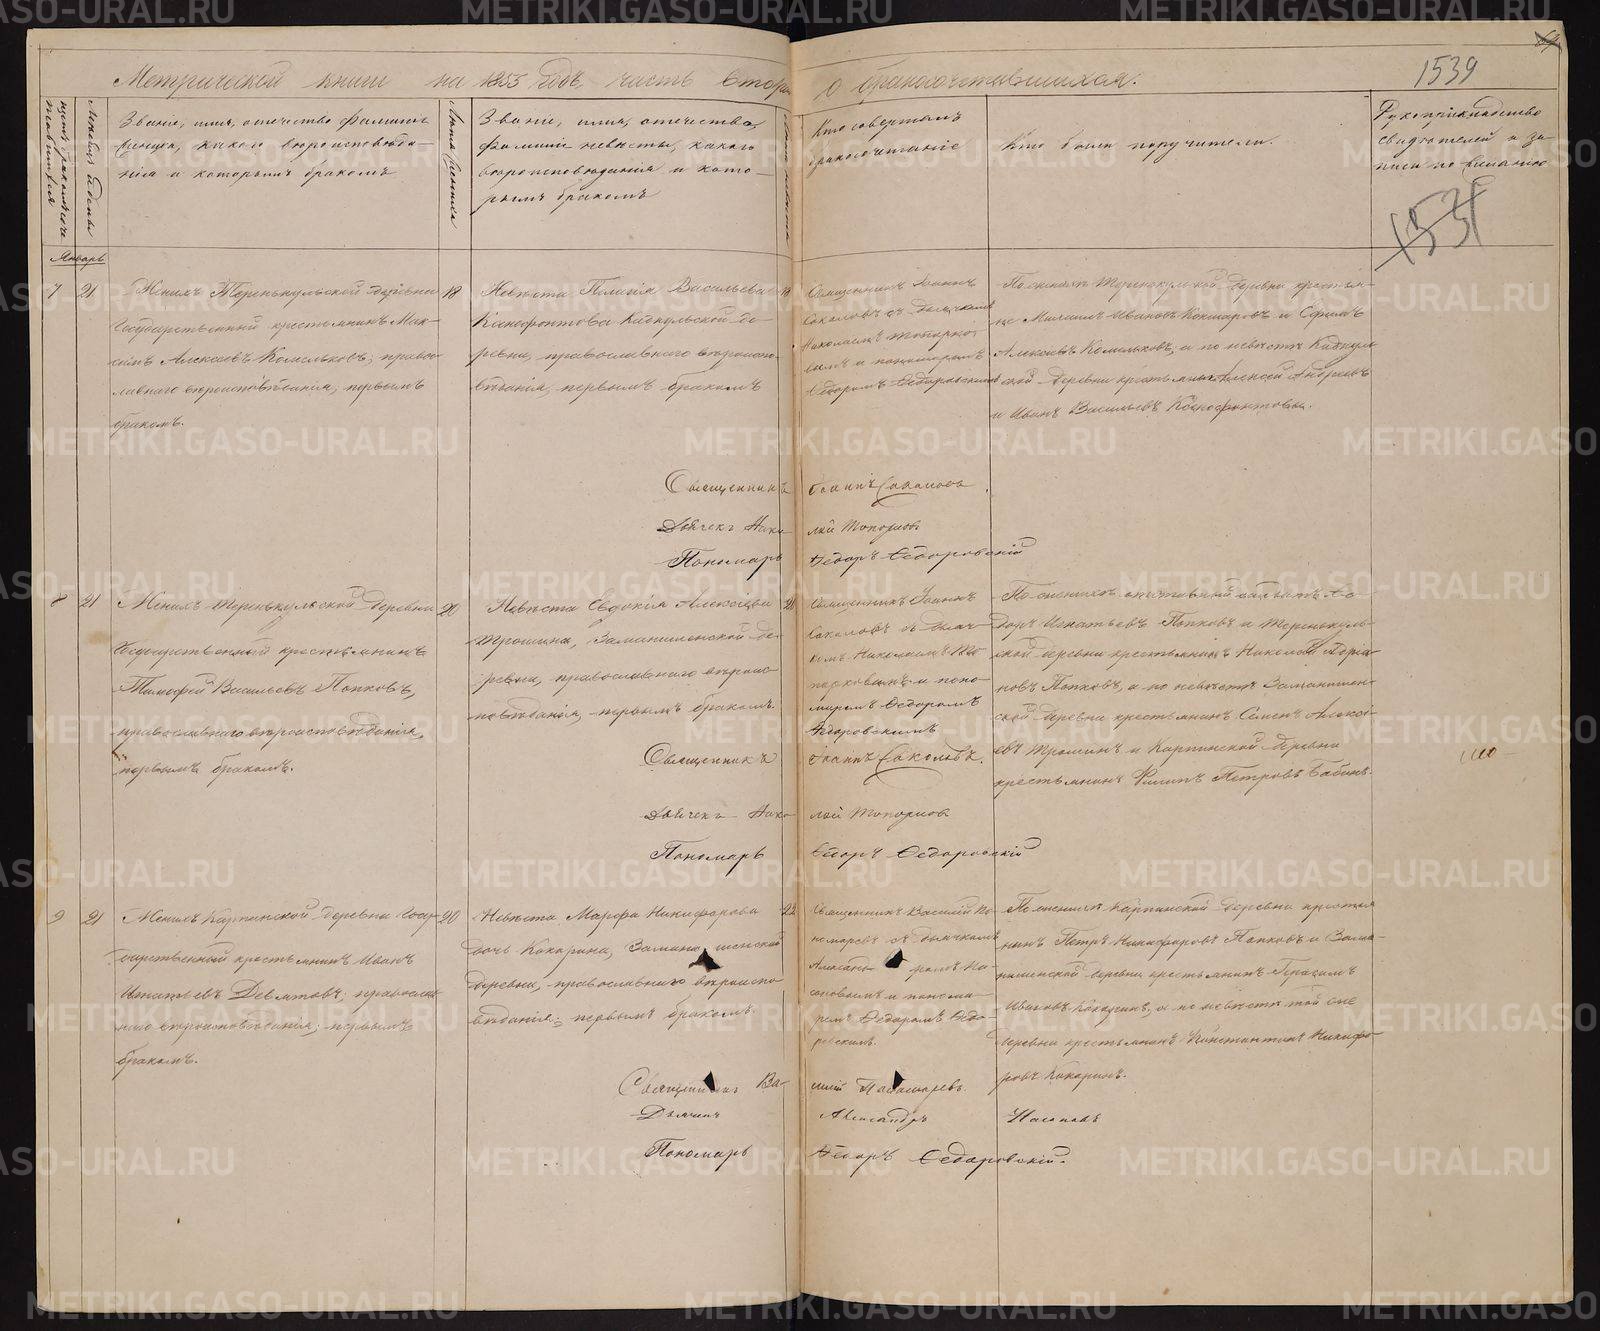 Метрической книги на 1855 годъ, часть вторая о бракосочетавшихся.
1539
Званіе, имя, отечество, фамилія
жениха, какого вѣроисповѣда-
нія и которымъ бракомъ
Лѣта жениха
Званіе, имя, отечества,
фамиліе невѣсты, какого
вѣроисповѣданія и кото-
рымъ бракомъ
Лѣта невѣсты
Кто совершалъ
бракосочитаніе
Кто были поручители.
Рукоприкладство
свидѣтелей и за-
писи по желанію
1531
Январь
7
21
Женихъ Теренькульской деревни
Государственный крестьянинъ Мак-
симъ Алексѣевъ Комельковъ, правос-
лавнаго вѣроисповѣданія, первымъ
бракомъ.
18
Невѣста Пелагія Васильева
Ксенофонтова Кадкульской де-
ревни, православнаго вѣроиспо-
вѣданія, первымъ бракомъ
18
Священникъ Іоаннъ
Соколовъ съ дьячкомъ
Николаемъ Топорко-
вымъ и пономаремъ
Ѳедоромъ Ѳедоровскимъ
По женихѣ Теренькульской деревни крестьян-
не Михаилъ Ивановъ Кокшаровъ и Ефимъ
Алексѣевъ Комельковъ, а по невѣстѣ Кадкуль-
ской деревни крестьяне Алексѣй Андреевъ
и Иванъ Васильевъ Ксенофонтовы.
Священникъ Іоаннъ Соколовъ
Дьячекъ Николай Топорковъ
Пономарь Ѳедоръ Ѳедоровскій
8
21
Женихъ Теренькульской деревни
Государственный крестьянинъ
Тимофей Васильевъ Попковъ,
православнаго вѣроисповѣданія,
первымъ бракомъ.
20
Невѣста Евдокія Алексѣева
Трошина, Заманиленской де-
ревни, православнаго вѣроис-
повѣданія, первымъ бракомъ.
21
Священникъ Іоаннъ
Соколовъ съ дьяч-
комъ Николаемъ То-
порковымъ и поно-
маремъ Ѳедоромъ
Ѳедоровскимъ
По женихѣ отставной солдатъ Ѳе-
доръ Игнатьевъ Попковъ и Теренькуль-
ской деревни крестьянинъ Николай
новъ Попковъ, а по невѣстѣ Заманилен-
ской деревни крестьянинъ Семенъ Алексѣ-
евъ Трошинъ и Карпинской деревни
крестьянинъ Филипъ Петровъ Бабинъ.
Священникъ Іоаннъ Соколовъ.
Дьячекъ Николай Топорковъ
Пономарь Ѳедоръ Ѳедоровскій
9
21
Женихъ Карпинской деревни Госу-
дарственный крестьянинъ Иванъ
Игнатьевъ Девятовъ, православ-
наго вѣроисповѣданія, первымъ
бракомъ.
20
Невѣста Марфа Никифорова
дочь Кокарина, Заманиленской
деревни, православнаго вѣроиспо-
вѣданія, первымъ бракомъ.
22
Священникъ Василій По-
номаревъ съ дьячкомъ
Александромъ На-
соновымъ и понома-
ремъ Ѳедоромъ Ѳедо-
ровскимъ.
По женихѣ Карпинской деревни крестья-
нинъ Петръ Никифоровъ Попковъ и Зама-
ниленской деревни крестьянинъ Герасимъ
Ивановъ Кокаринъ, а по невѣстѣ той же
деревни крестьянинъ Константинъ Никифо-
ровъ Кокаринъ.
Священникъ Василій Пономаревъ.
Дьячекъ Александръ Насоновъ
Пономарь Ѳедоръ Ѳедоровскій.
METRIKI.GASO-URAL.RU